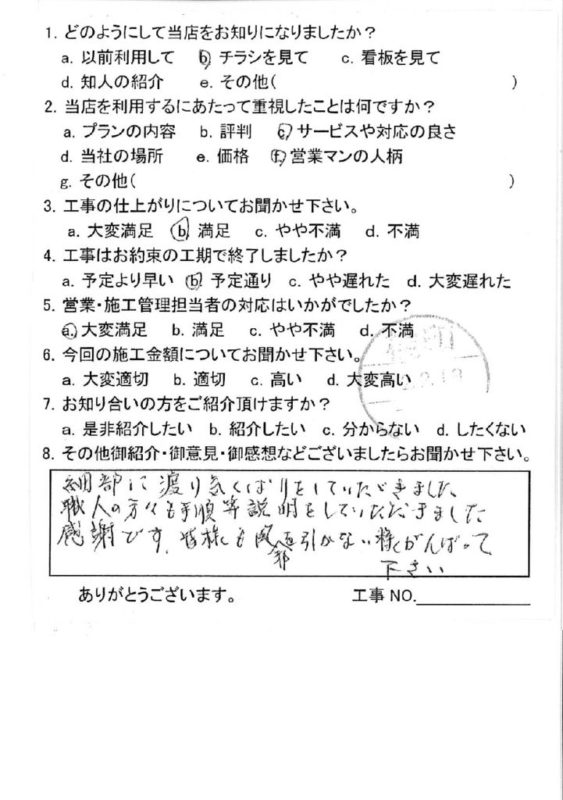 1. どのようにして当店をお知りになりましたか？
a. 以前利用して b. チラシを見て c. 看板を見て
d. 知人の紹介 e. その他( )
2. 当店を利用するにあたって重視したことは何ですか？
a. プランの内容 b. 評判 c. サービスや対応の良さ
d. 当社の場所 e. 価格 f. 営業マンの人柄
g. その他( )
3. 工事の仕上がりについてお聞かせ下さい。
a. 大変満足 b. 満足 c. やや不満 d. 不満
4. 工事はお約束の工期で終了しましたか？
a. 予定より早い b. 予定通り c. やや遅れた d. 大変遅れた
5. 営業・施工管理担当者の対応はいかがでしたか？
a. 大変満足 b. 満足 c. やや不満 d. 不満
6. 今回の施工金額についてお聞かせ下さい。
a. 大変適切 b. 適切 c. 高い d. 大変高い
7. お知り合いの方をご紹介頂けますか？
a. 是非紹介したい b. 紹介したい c. 分からない d. したくない
8. その他御紹介・御意見・御感想などございましたらお聞かせ下さい。
細部に渡り気くばりをしていただきました
職人の方々も手順等説明をしていただきました
感謝です、皆様も風邪引かない様がんばって
下さい
ありがとうございます。 工事 NO.